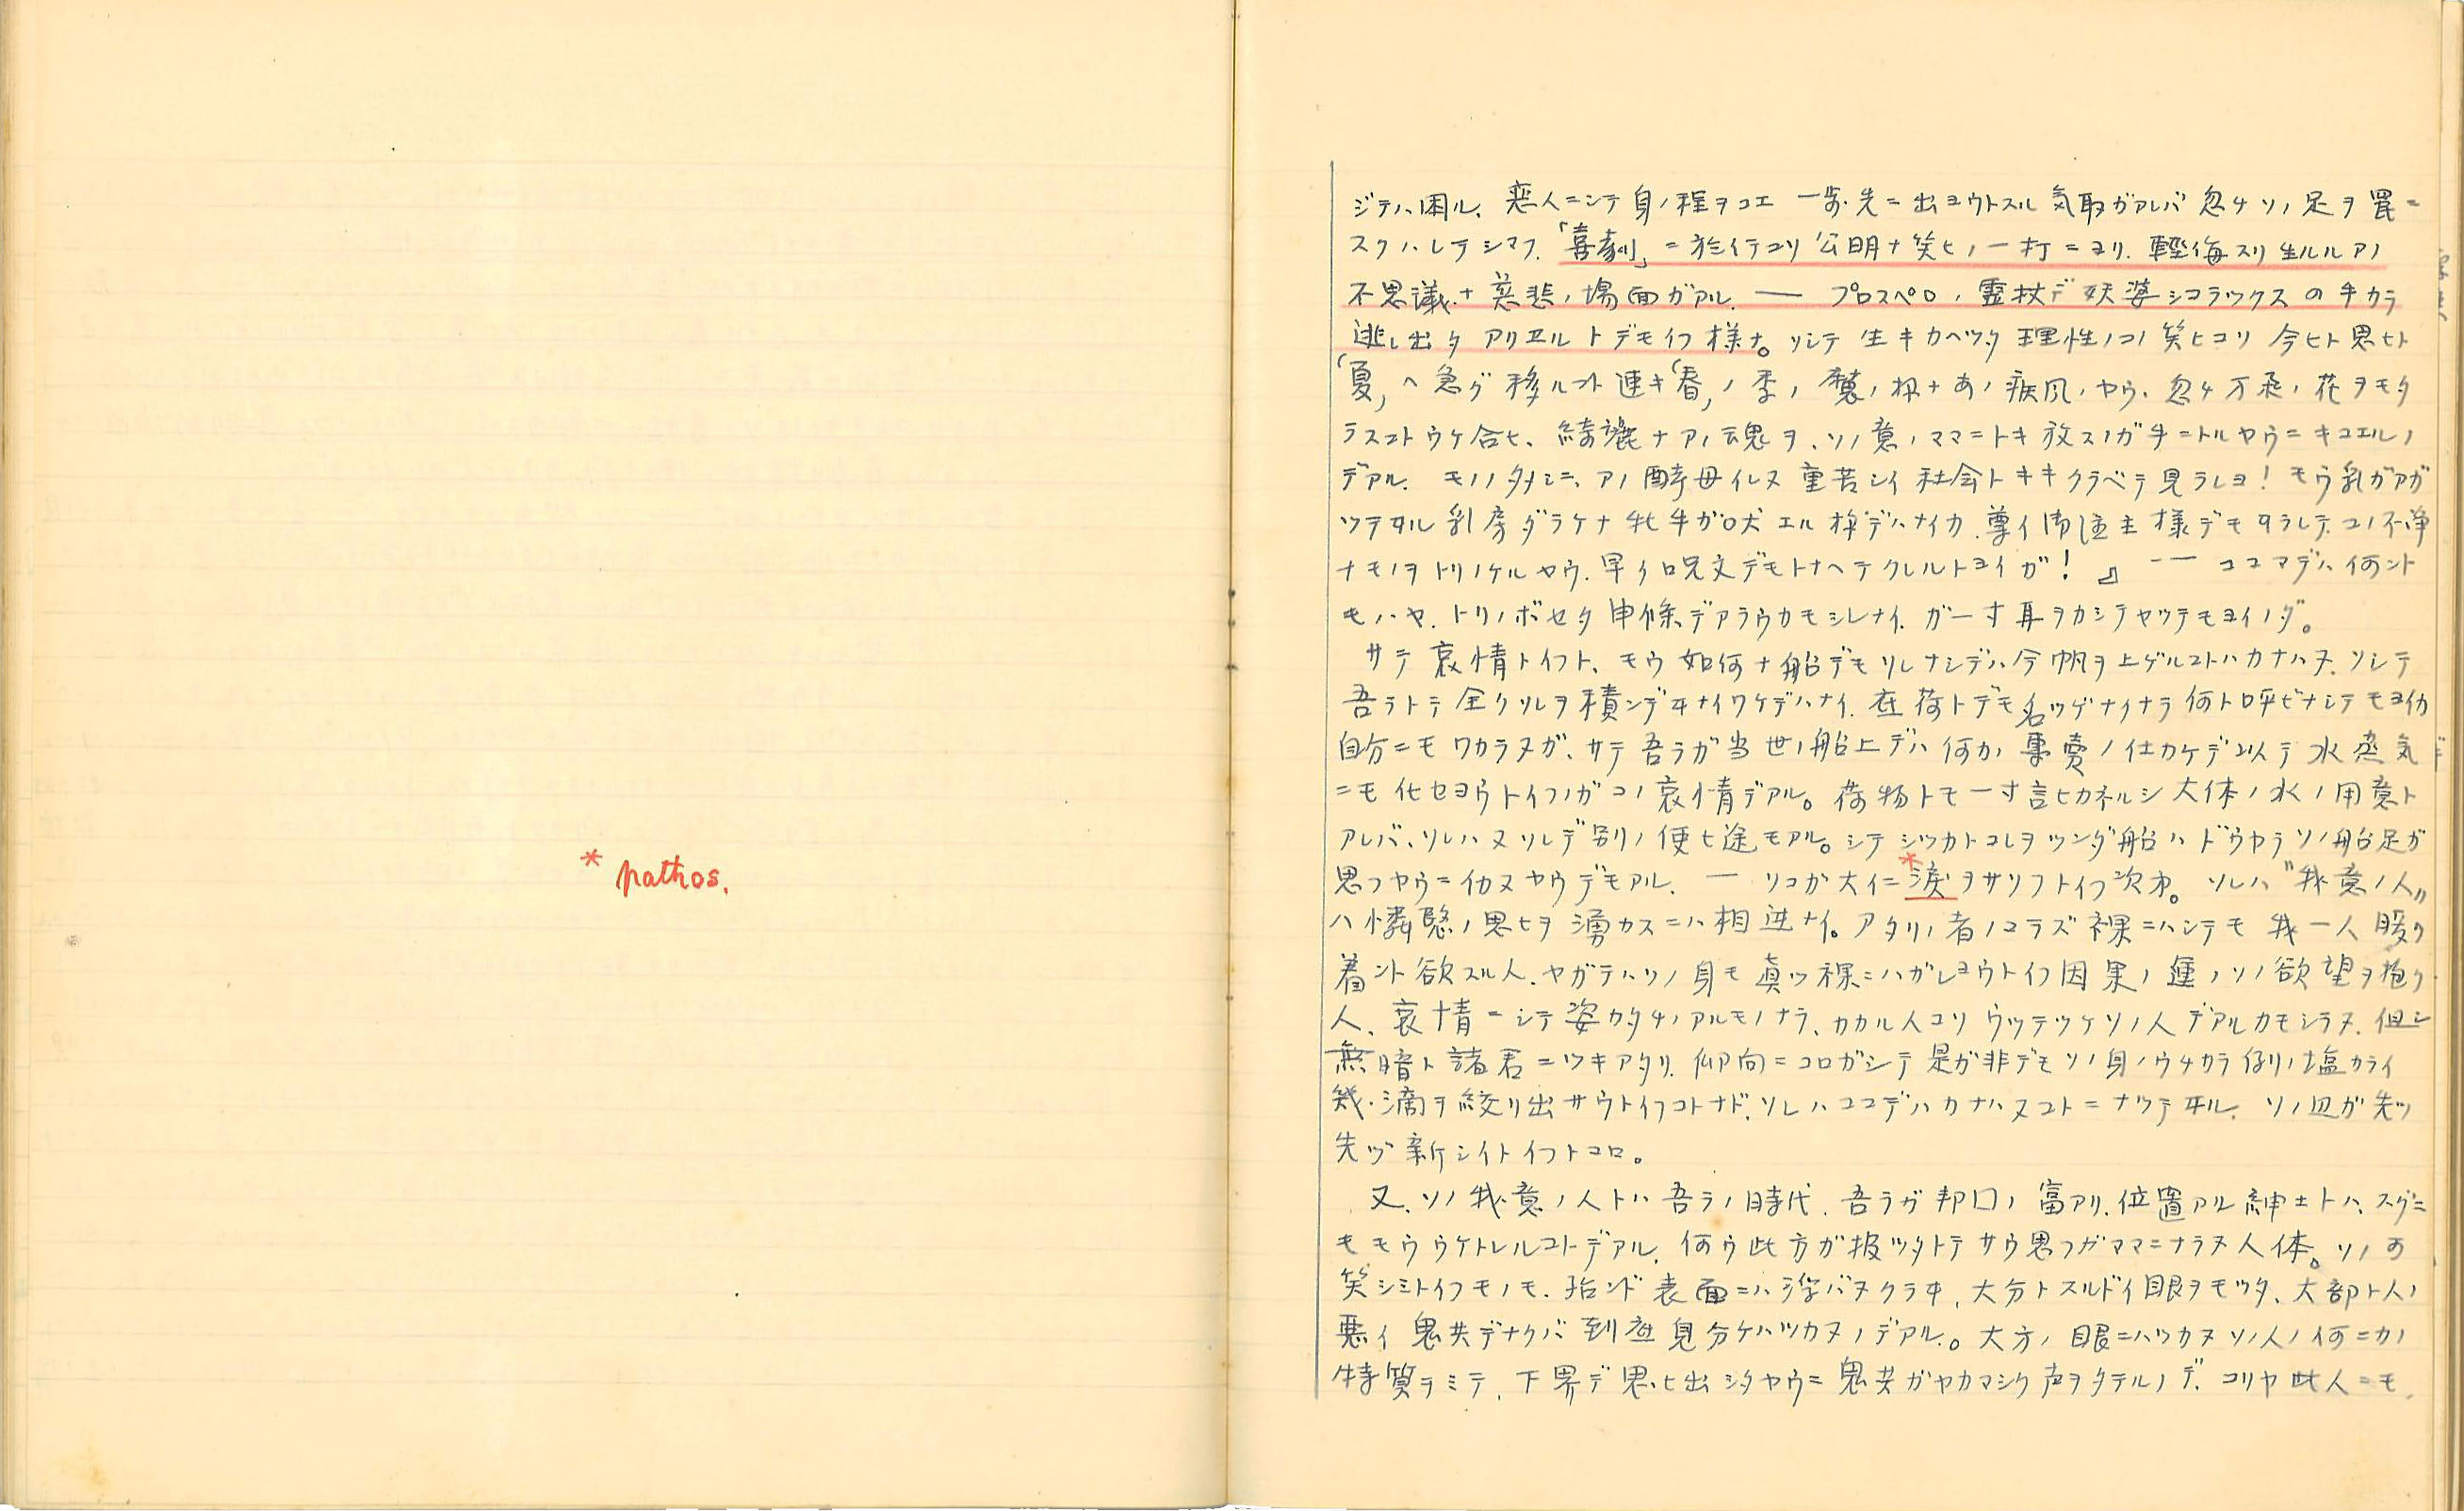 * pathos.
ジテハ困ル、恋人ニシテ身ノ程ヲコエ 一歩先ニ出ヨウトスル気取ガアレバ忽チソノ足ヲ罠ニ
スクハレテシマフ.「喜劇」ニ於イテコソ公明ナ笑ヒノ一打ニヨリ、軽侮スリ生ルルアノ
不思議ナ慈悲ノ場面ガアル. ― プロスペロノ霊杖デ妖婆シコラックスの手カラ
逃レ出タ アリエルトデモイフ様ナ。ソシテ生キカヘツタ理性ノコノ笑ヒコソ今ヒト思ヒト
「夏」ヘ急グ移ルコト速キ「春」ノ季ノ魔ノ様ナあノ疾風ノヤウ、忽チ万朶ノ花ヲモタ
ラスコトウケ合ヒ、綺麗ナアノ魂ヲ、ソノ意ノママニトキ放スノガ手ニトルヤウニキコエルノ
デアル. モノノタメシニ、アノ酵母イレヌ重苦シイ社会トキキクラベテ見ラレヨ! モウ乳ガアガ
ツテヰル乳房ダラケナ牝牛ガ吠エル様デハナイカ.尊イ御住主様デモヲラレテ、コノ不浄
ナモノヲトリノケルヤウ、早ク呪文デモトナヘテクレルトヨイガ!』 ―― ココマデハ何ント
モハヤ、トリノボセタ申條デアラウカモシレナイ、ガ一寸耳ヲカシテヤツテモヨイノダ。
サテ哀情トイフト、モウ如何ナ船デモソレナシデハ今帆ヲ上ゲルコトハカナハヌ.ソシテ
吾ラトテ全クソレヲ積ンデヰナイワケデハナイ.在荷トデモ名ヅケナイナラ何ト呼ビナシテモヨイカ
自分ニモワカラヌガ、サテ吾ラガ当世ノ船上デハ何カノ仕カケデ以テ水蒸気
ニモ化セヨウトイフノガコノ哀情デアル。荷物トモ一寸言ヒカネルシ大体ノ水ノ用意ト
アレバ、ソレハ又ソレデ別ノ使ヒ途モアル。シテシツカトコレヲツンダ船ハドウヤラソノ船足ガ
思フヤウニイカヌヤウデモアル. ― ソコガ大イニ*涙ヲサソフトイフ次才。ソレハ“我意ノ人”
ハ憐愍ノ思ヒヲ湧カスニハ相違ナイ。アタリノ者ノコラズ裸ニハシテモ我一人暖ク
着ント欲スル人、ヤガテハソノ身モ真ツ裸ニハガレヨウトイフ因果ノ運ノソノ欲望ヲ抱ク
人、哀情ニシテ姿カタチノアルモノナラ、カカル人コソウツテツケソノ人デアルカモシラヌ.但シ
無暗ト諸君ニツキアタリ、仰向ニコロガシテ是ガ非デモソノ身ノウチカラ例ノ塩カライ
幾滴ヲ絞リ出サウトイフコトナド、ソレハココデハカナハヌコトニナツテヰル. ソノ辺ガ先ツ
先ヅ新シイトイフトコロ。
又、ソノ我意ノ人トハ吾ラノ時代、吾ラガ邦口ノ富アリ、位置アル紳士トハ、スグニ
モモウウケトレルコトデアル. 何ウ此方ガ扱ツタトテサウ思フガママニナラヌ人体。ソノ可
笑シミトイフモノモ、殆ンド表面ニハ浮バヌクラヰ、大分トスルドイ眼ヲモツタ、大部ト人ノ
悪イ鬼共デナクバ到底見分ケハツカヌノデアル。大方ノ眼ニハツカヌソノ人ノ何ニカノ
特質ヲミテ、下界デ思ヒ出シタヤウニ鬼共ガヤカマシク声ヲタテルノデ、コリヤ此人ニモ、